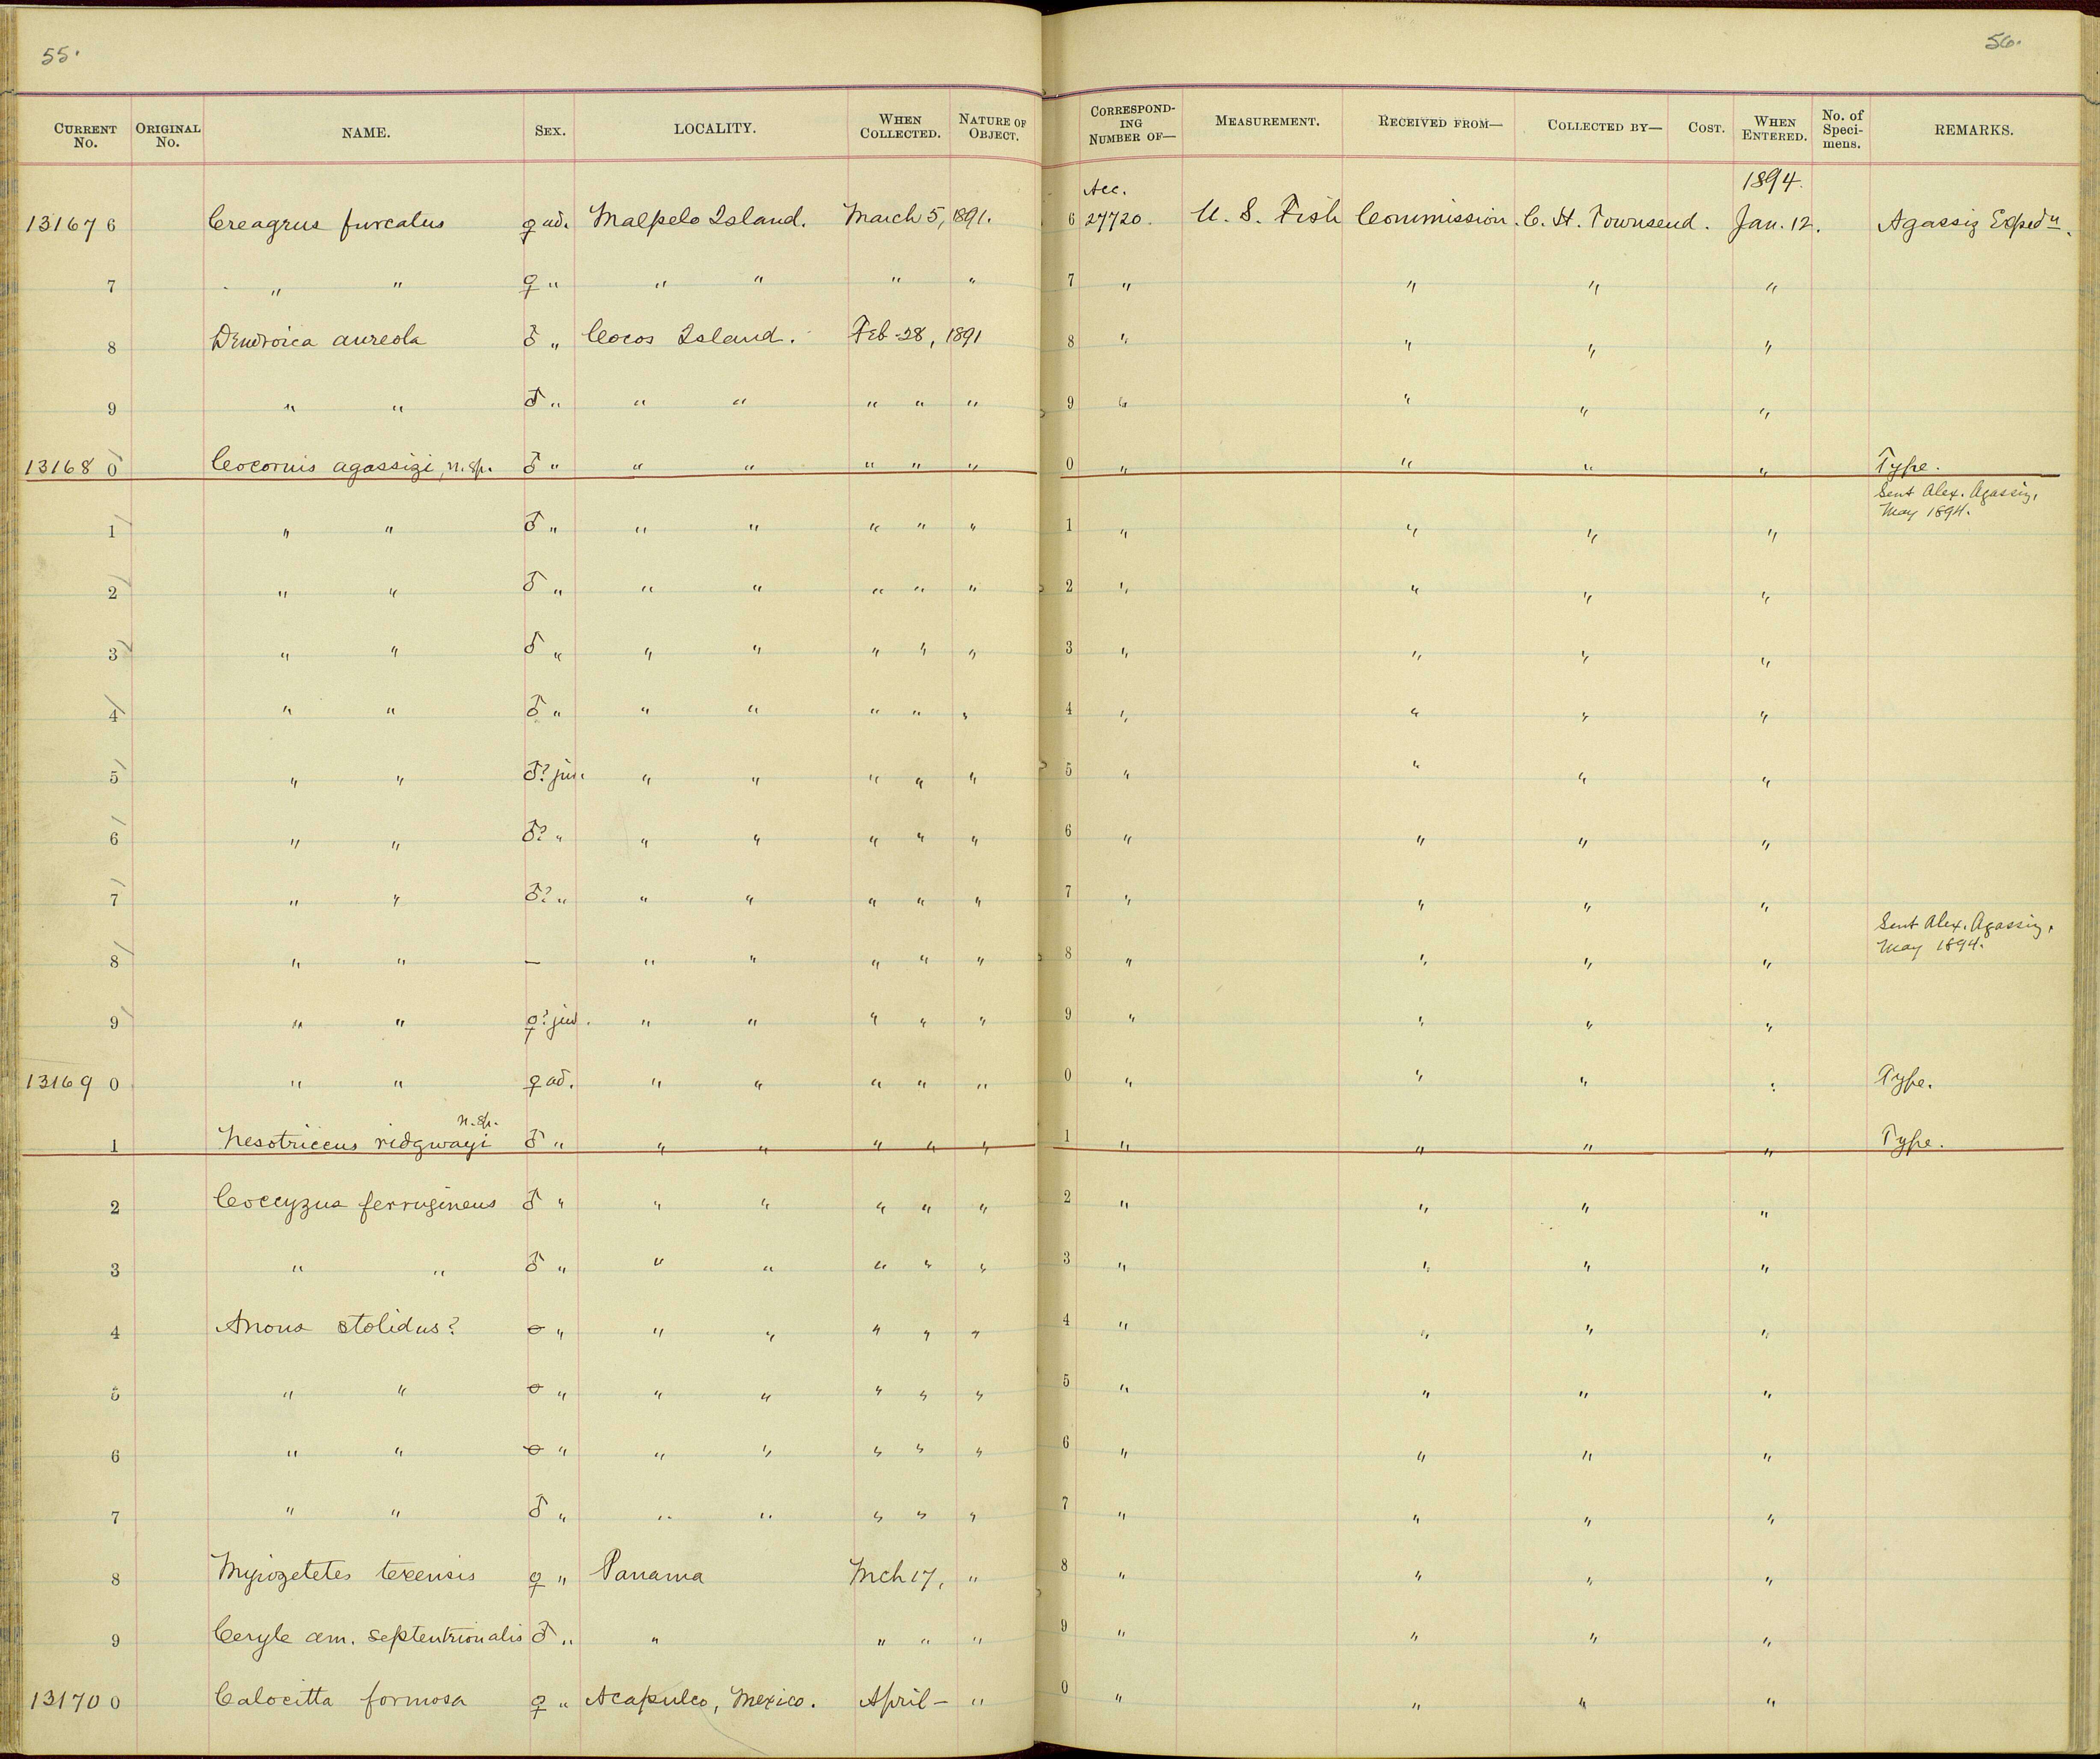 55.
56.
CURRENT No. ORIGINAL No. NAME. SEX. LOCALITY. WHEN COLLECTED. NATURE OF OBJECT. CORRESPONDING NUMBER OF— MEASUREMENT. RECEIVED FROM— COLLECTED BY— COST. WHEN ENTERED. No. of Specimens. REMARKS.
Acc. 1894.
131676 Creagrus furcatus ♀ ad. Malpelo Island. March 5, 1891. 6 27720. U. S. Fish Commission. C. H. Townsend. Jan. 12. Agassiz Expedn.
7 " " ♀ " " " " " 7 " " " "
8 Dendroica aureola ♂ " Cocos Island. Feb. 28, 1891 8 " " " "
9 " " ♂ " " " " " " 9 " " " "
131680 Cocornis agassizi, n. sp. ♂ " " " " " " 0 " " " " Type.
Sent Alex. Agassiz,
May 1894.
1 " " ♂ " " " " " " 1 " " " "
2 " " ♂ " " " " " " 2 " " " "
3 " " ♂ " " " " " " 3 " " " "
4 " " ♂ " " " " " " 4 " " " "
5 " " ♂? juv. " " " " " 5 " " " "
6 " " ♂? " " " " " " 6 " " " "
7 " " ♂? " " " " " " 7 " " " "
Sent Alex. Agassiz,
May 1894.
8 " " — " " " " " 8 " " " "
9 " " ♀? juv. " " " " " 9 " " " "
131690 " " ♀ ad. " " " " " 0 " " " " Type.
n. sp.
1 Nesotriccus ridgwayi ♂ " " " " " " 1 " " " " Type.
2 Coccyzus ferrugineus ♂ " " " " " " 2 " " " "
3 " " ♂ " " " " " " 3 " " " "
4 Anous stolidus? " " " " " " 4 " " " "
5 " " " " " " " " 5 " " " "
6 " " " " " " " " 6 " " " "
7 " " ♂ " " " " " " 7 " " " "
8 Myiozetetes texensis ♀ " Panama Mch 17, " 8 " " " "
9 Ceryle am. septentrionalis ♂ " " " " " 9 " " " "
131700 Calocitta formosa ♀ " Acapulco, Mexico. April — " 0 " " " "